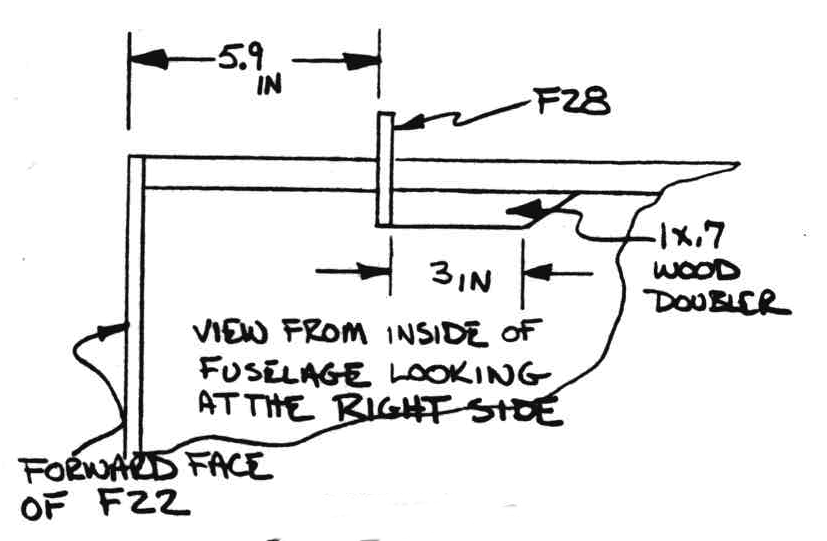 5.9
IN
F28
1X.7
WOOD
DOUBLER
3 IN
VIEW FROM INSIDE OF
FUSELAGE LOOKING
AT THE RIGHT SIDE
FORWARD FACE
OF F22